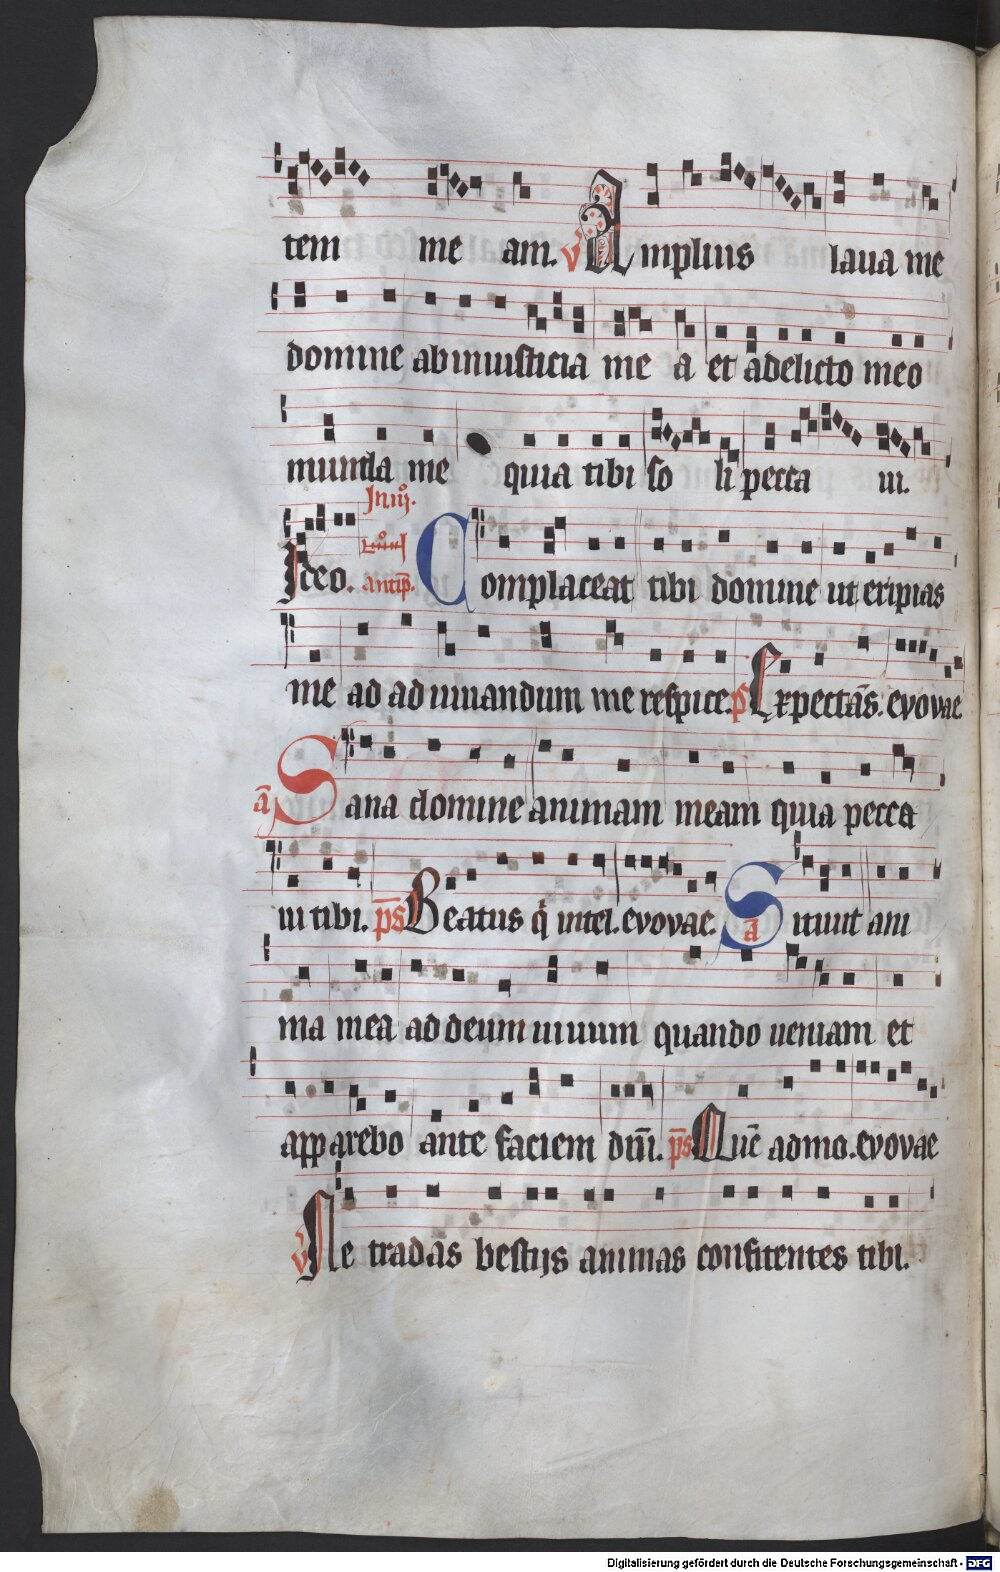 tem me am. V Amplius laua me
domine ab iniusticia me a et a delicto meo
munda me quia tibi so li pecca ui.
In iij.
Ideo. noct antiph. Complaceat tibi domine ut eripias
me ad adiuuandum me respice. ps Expectās. evovae
ā Sana domine animam meam quia pecca
ui tibi. ps Beatus q intel. evovae. ā Sitiuit ani
ma mea ad deum uiuum quando ueniam et
apparebo ante faciem dnī. ps Quē admo. evovae
V Ne tradas bestijs animas confitentes tibi.
Digitalisierung gefördert durch die Deutsche Forschungsgemeinschaft - DFG